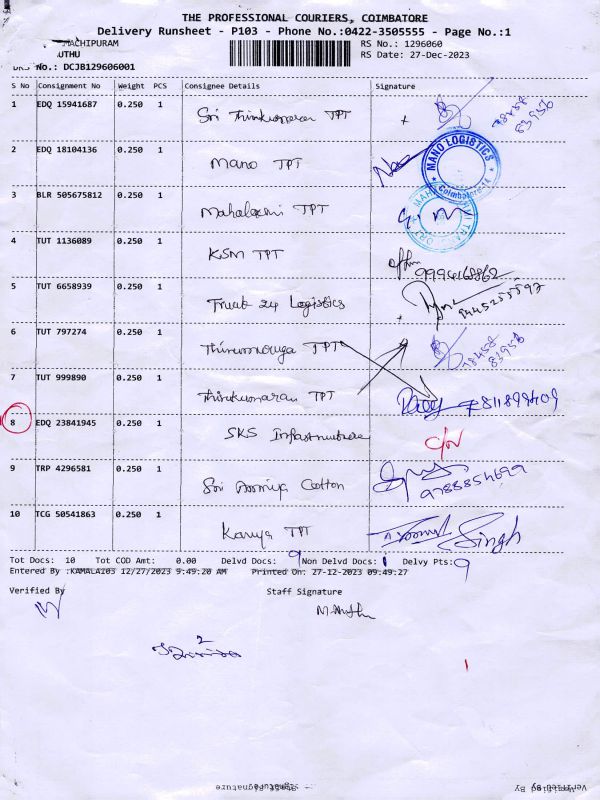 THE PROFESSIONAL COURIERS, COIMBATORE
Delivery Runsheet - P103 - Phone No.:0422-3505555 - Page No.:1
MACHIPURAM
RS No.: 1296060
UTHU
RS Date: 27-Dec-2023
DRS No.: DCJB129606001
S No Consignment No Weight PCS Consignee Details Signature
1 EDQ 15941687 0.250 1 Sri Thirukumaran TPT
2 EDQ 18104136 0.250 1 Mano TPT
MANO LOGISTICS
Coimbatore
3 BLR 505675812 0.250 1 Mahalaxmi TPT
4 TUT 1136089 0.250 1 KSM TPT 9994168862
5 TUT 6658939 0.250 1 Truck 24 Logistics 9445255597
6 TUT 797274 0.250 1 Thirumuruga TPT
7 TUT 999890 0.250 1 Thirukumaran TPT 7811899409
8 EDQ 23841945 0.250 1 SKS Infrastructure
9 TRP 4296581 0.250 1 Sri Cotton 9788854699
10 TCG 50541863 0.250 1 Kavya TPT Singh
Tot Docs: 10 Tot COD Amt: 0.00 Delvd Docs: 9 Non Delvd Docs: 1 Delvy Pts: 9
Entered By :KAMALA103 12/27/2023 9:49:20 AM Printed On: 27-12-2023 09:49:27
Verified By Staff Signature
M.Muthu
2
1
Verified By